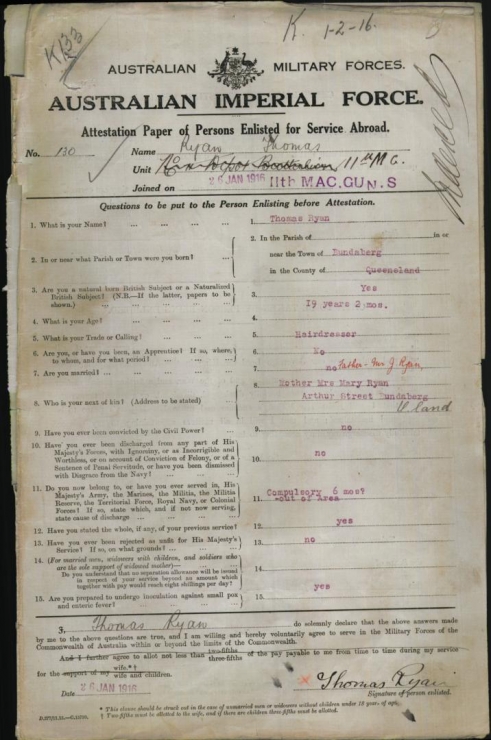 K133
K. 1-2-16.
AUSTRALIAN MILITARY FORCES.
AUSTRALIAN IMPERIAL FORCE.
Attestation Paper of Persons Enlisted for Service Abroad.
No. 130 Name Ryan Thomas
Unit 11th M G.
Joined on 26 JAN 1916 11th MAC. GUN. S
Questions to be put to the Person Enlisting before Attestation.
1. What is your Name? ... ... ... ... 1. Thomas Ryan
2. In or near what Parish or Town were you born? ... 2. In the Parish of in or
near the Town of Bundaberg
in the County of Queensland
3. Are you a natural born British Subject or a Naturalized
British Subject? (N.B.—If the latter, papers to be
shown.) ... ... 3. Yes
4. What is your Age? ... ... ... ... 19 years 2 mos.
5. What is your Trade or Calling? ... ... ... 5. Hairdresser
6. Are you, or have you been, an Apprentice? If so, where,
to whom, and for what period? ... ... 6. No
7. Are you married? ... ... ... ... 7. no Father - J Ryan,
8. Who is your next of kin? (Address to be stated) ... 8. Mother Mrs Mary Ryan
Arthur Street Bundaberg
Q land
9. Have you ever been convicted by the Civil Power? ... 9. no
10. Have you ever been discharged from any part of His
Majesty's Forces, with Ignominy, or as Incorrigible and
Worthless, or on account of Conviction of Felony, or of a
Sentence of Penal Servitude, or have you been dismissed
with Disgrace from the Navy? ... 10. no
11. Do you now belong to, or have you ever served in, His
Majesty's Army, the Marines, the Militia, the Militia
Reserve, the Territorial Force, Royal Navy, or Colonial
Forces? If so, state which, and if not now serving,
state cause of discharge ... ... 11. Compulsory 6 mos?
out of Area
12. Have you stated the whole, if any, of your previous service? 12. yes
13. Have you ever been rejected as unfit for His Majesty's
Service? If so, on what grounds? ... 13. no
14. (For married men, widowers with children, and soldiers who
are the sole support of widowed mother)—
Do you understand that no separation allowance will be issued
in respect of your service beyond an amount which
together with pay would reach eight shillings per day? 14.
15. Are you prepared to undergo inoculation against small pox
and enteric fever? ... ... 15. yes
I, Thomas Ryan do solemnly declare that the above answers made
by me to the above questions are true, and I am willing and hereby voluntarily agree to serve in the Military Forces of the
Commonwealth of Australia within or beyond the limits of the Commonwealth.
And I further agree to allot not less than two-fifths three-fifths of the pay payable to me from time to time during my service
for the support of my wife.*† wife and children.
Date 26 JAN 1916 × Thomas Ryan
Signature of person enlisted.
* This clause should be struck out in the case of unmarried men or widowers without children under 18 years of age.
† Two-fifths must be allotted to the wife, and if there are children three-fifths must be allotted.